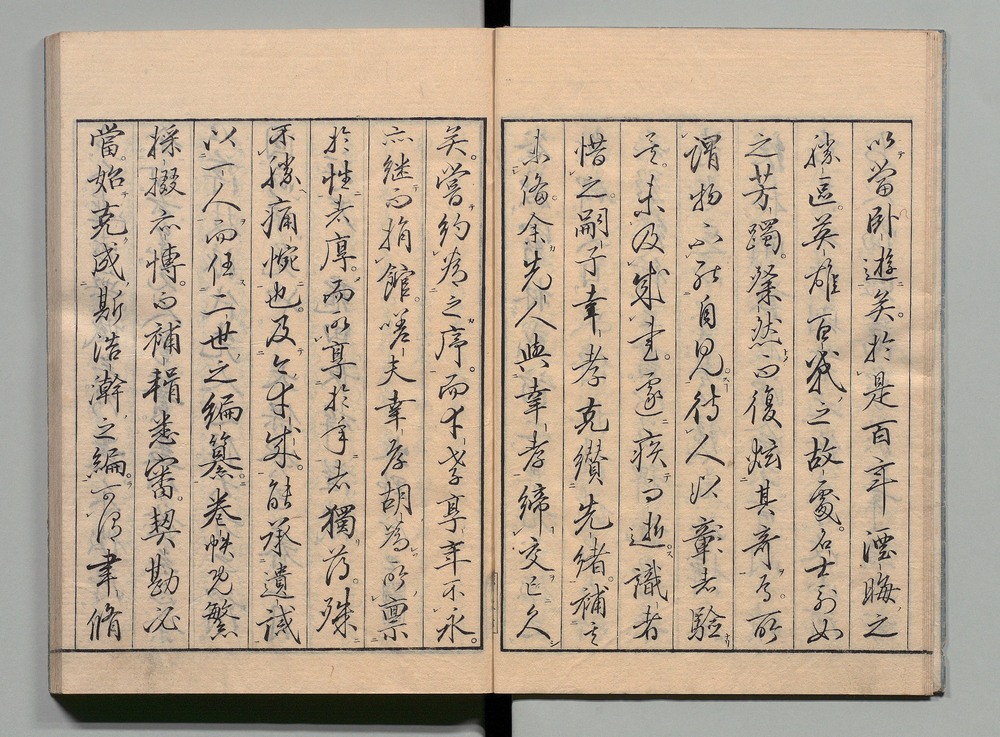 以當臥遊矣。於是百年湮晦之
勝區。英雄百戰之故處。名士列女
之芳躅。粲然而復炫其奇焉。所
謂物不能自見。待人以彰者驗
矣。未及成書。遽疾而逝。識者
惜之。嗣子幸孝克纘先緒。補其
未備。余先人與幸孝締交已久
矣。嘗約為之序。而幸孝享年不永。
亦継而捐館。嗟夫幸孝胡為所稟
於性者厚。而所享於年者獨薄。殊
不勝痛惋也。及今幸成。能承遺誡
以一人而任二世之編纂。卷帙況繁
採掇亦博。而補輯悉審。契勘必
當。始克成斯浩瀚之編。可謂聿脩